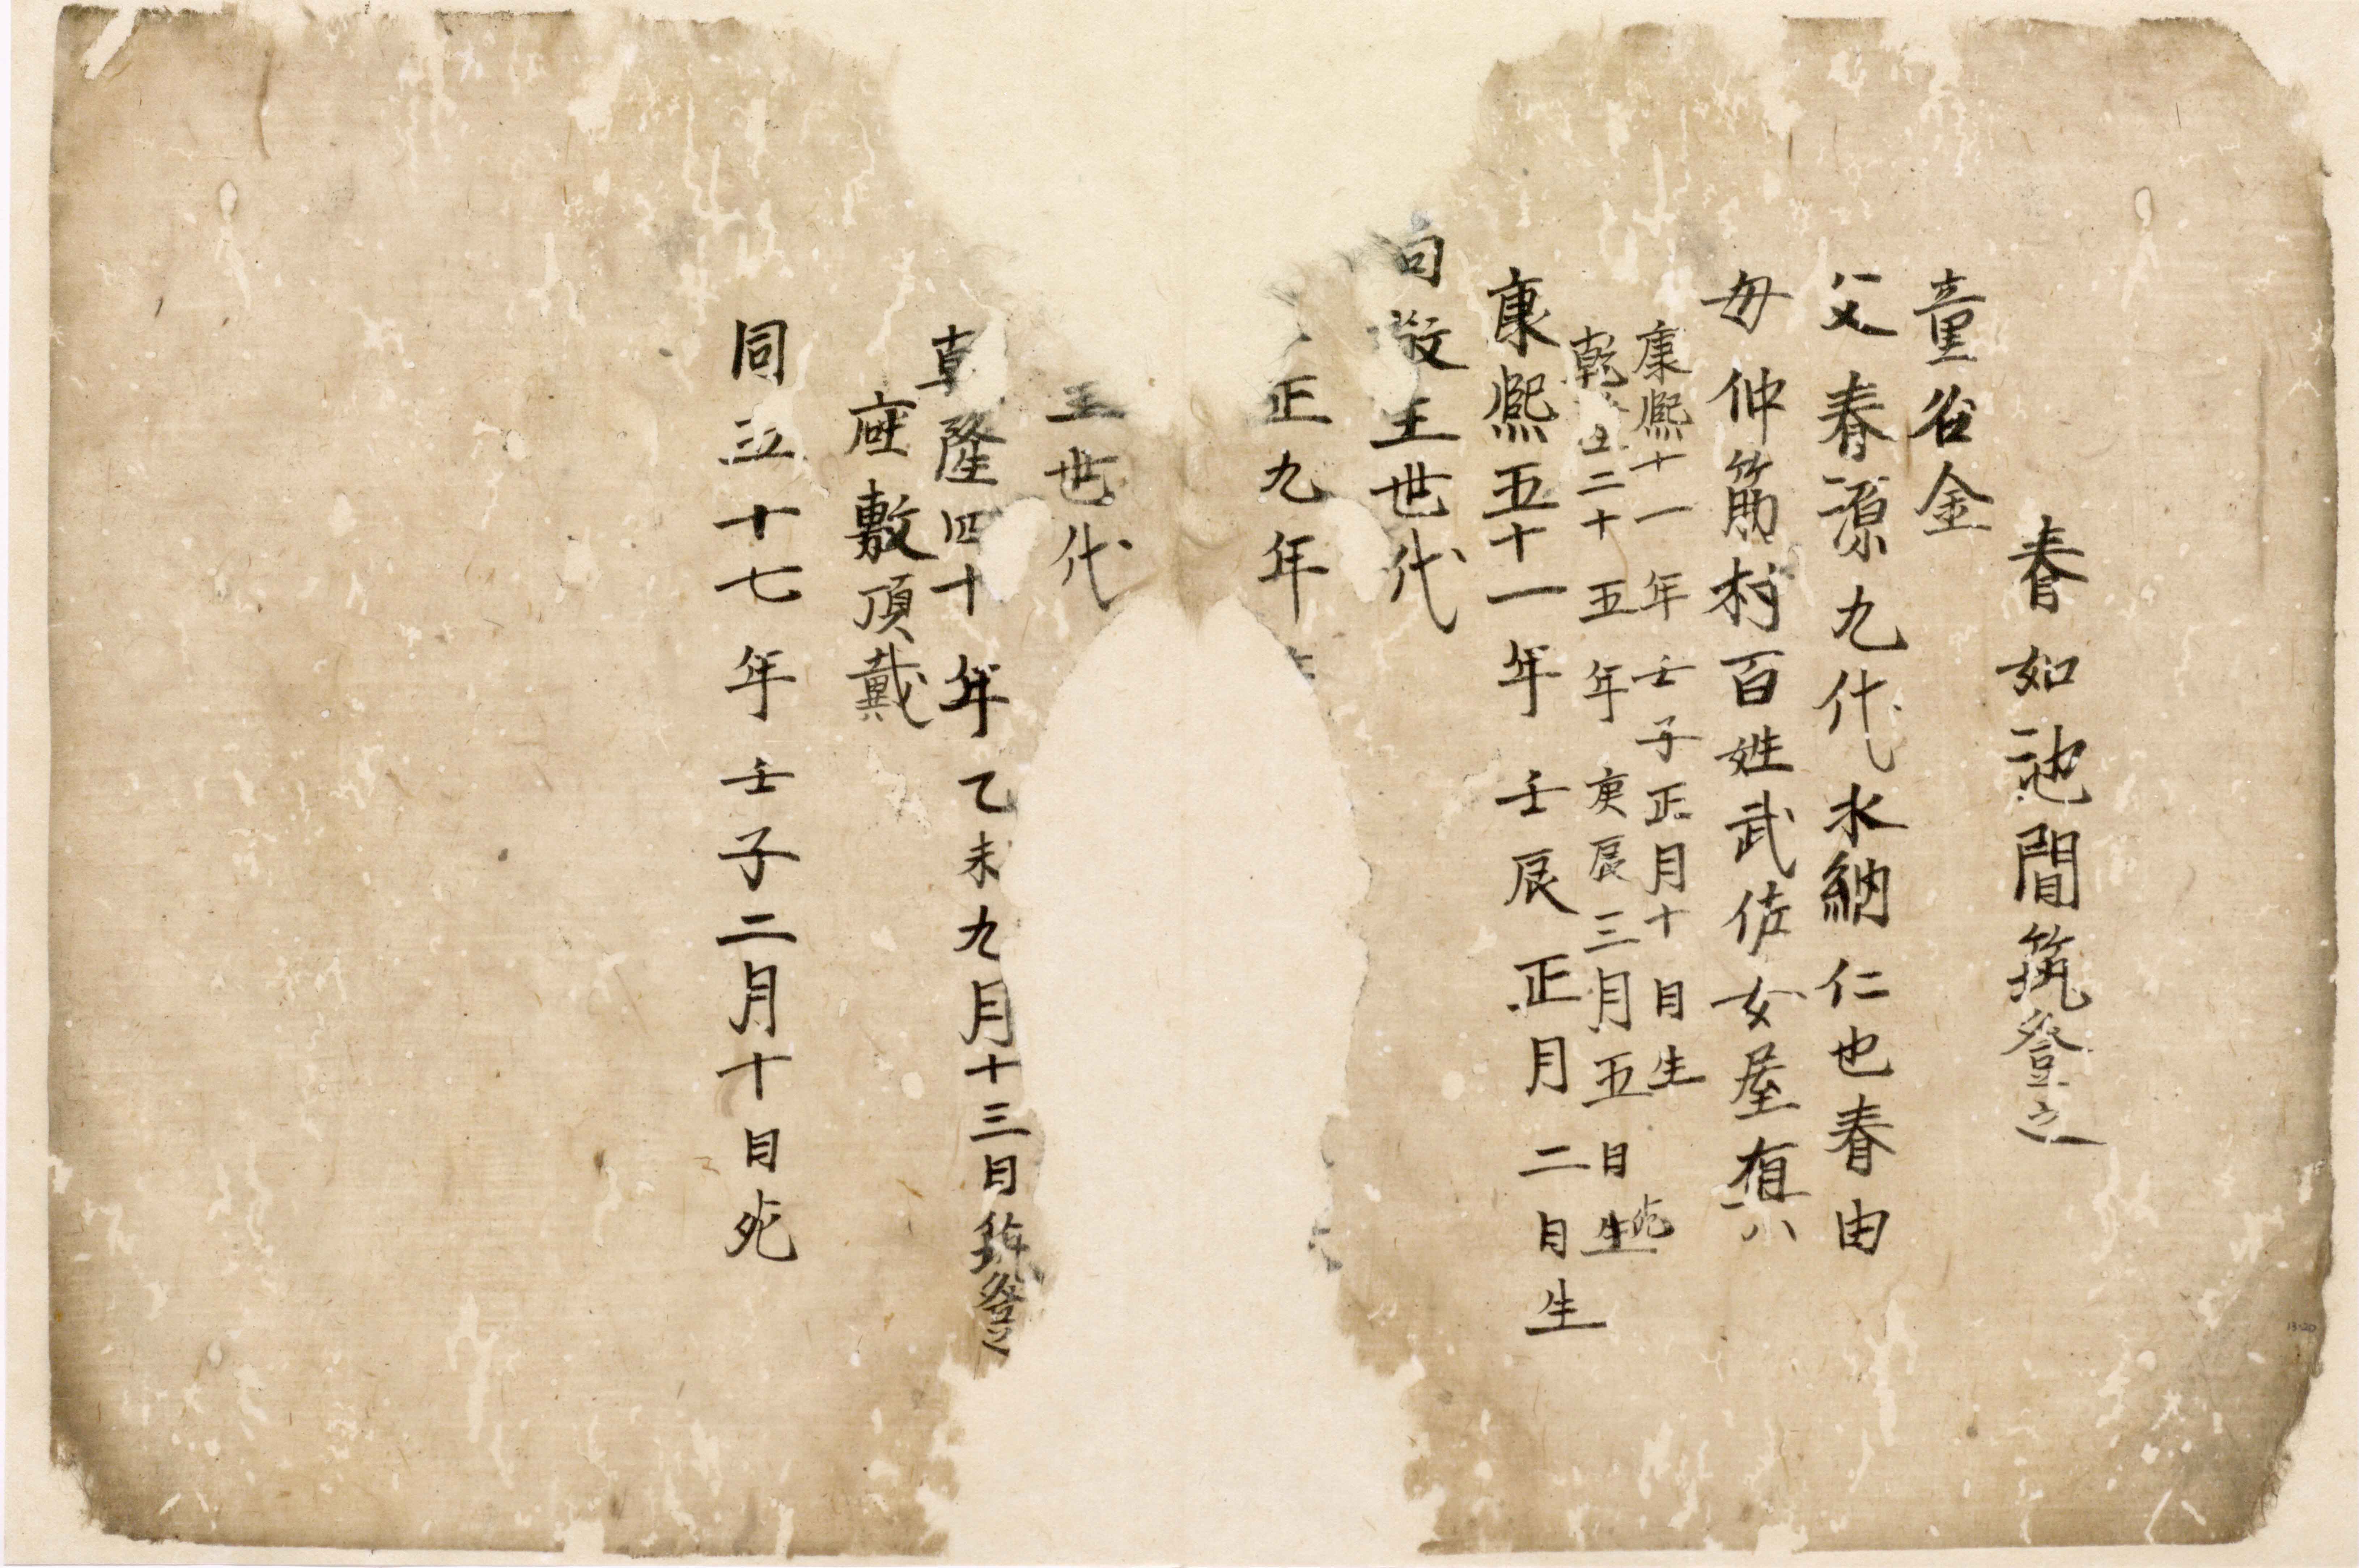 春如池間筑登之
童名金
父春源九代水納仁也春由
母仲筋村百姓武佐女屋有八
康熙十一年壬子正月十日生
乾隆二十五年庚辰三月五日死
康熙五十一年壬辰正月二日生
向敬王世代
正九年
王世代
乾隆四十年乙未九月十三日筑登之
座敷頂戴
同五十七年壬子二月十日死